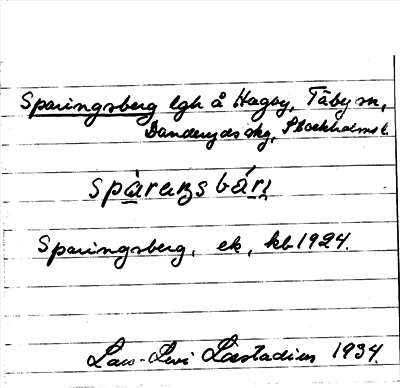 Sparingsberg lgh å Hagby, Täby sn,
Danderyds skg, Stockholms l.
spàraŋsbárj
Sparingsberg, ek, kb 1924.
Lars-Levi Læstadius 1934.